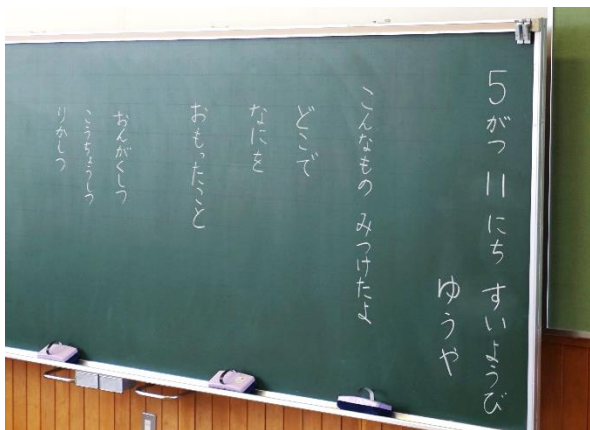 5がつ11にち すいようび
ゆうや
こんなもの みつけたよ
どこで
なにを
おもったこと
おんがくしつ
こうちょうしつ
りかしつ